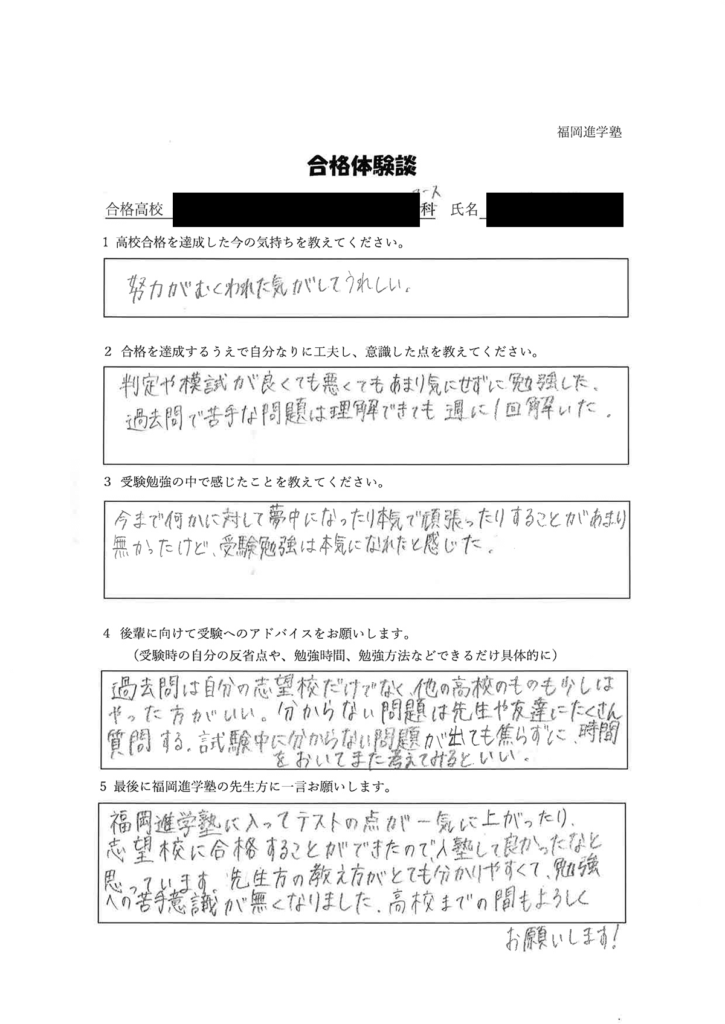 福岡進学塾
合格体験談
コース
合格高校 科 氏名
1 高校合格を達成した今の気持ちを教えてください。
努力がむくわれた気がしてうれしい。
2 合格を達成するうえで自分なりに工夫し、意識した点を教えてください。
判定や模試が良くても悪くてもあまり気にせずに勉強した、
過去問で苦手な問題は理解できても週に1回解いた。
3 受験勉強の中で感じたことを教えてください。
今まで何かに対して夢中になったり本気で頑張ったりすることがあまり
無かったけど、受験勉強は本気になれたと感じた。
4 後輩に向けて受験へのアドバイスをお願いします。
(受験時の自分の反省点や、勉強時間、勉強方法などできるだけ具体的に)
過去問は自分の志望校だけでなく、他の高校のものも少しは
やった方がいい。分からない問題は先生や友達にたくさん
質問する。試験中に分からない問題が出ても焦らずに、時間
をおいてまた考えてみるといい。
5 最後に福岡進学塾の先生方に一言お願いします。
福岡進学塾に入ってテストの点が一気に上がったり、
志望校に合格することができたので、入塾して良かったなと
思っています。先生方の教え方がとても分かりやすくて、勉強
への苦手意識が無くなりました。高校までの間もよろしく
お願いします!